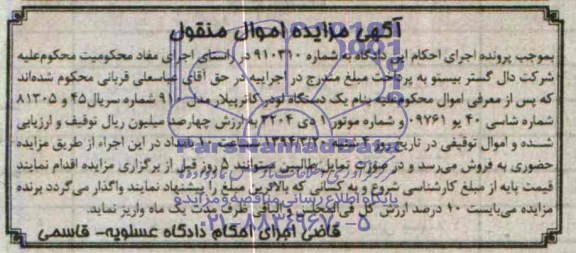 آگهی مزایده اموال منقول
بموجب پرونده اجرای احکام این دادگاه به شماره ۹۱۰۳۱۰ در راستای اجرای مفاد محکومیت محکوم‌علیه
شرکت دال گستر بیستو به پرداخت مبلغ مندرج در اجراییه در حق آقای عباسعلی قربانی محکوم شده‌اند
که پس از معرفی اموال محکوم‌علیه بنام یک دستگاه لودر کاترپیلار مدل ۹۱ شماره سریال ۴۵ و ۸۱۳۰۵
شماره شاسی ۴۰ یو ۰۹۷۶۱ شماره موتور ۱۰ دی ۳۲۰۴ به ارزش چهارصد میلیون ریال توقیف و ارزیابی
شده و اموال توقیفی در تاریخ روز ۴ شنبه در این اجراء از طریق مزایده
حضوری به فروش می‌رسد و در صورت تمایل طالبین میتوانند ۵ روز قبل از برگزاری مزایده اقدام نمایند
قیمت پایه از مبلغ کارشناسی شروع و به کسانی که بالاترین مبلغ را پیشنهاد نمایند واگذار می‌گردد برنده
مزایده می‌بایست ۱۰ درصد ارزش کل فی‌المجلس و الباقی ظرف مدت یک ماه واریز نماید.
قاضی اجرای احکام دادگاه عسلویه- قاسمی
پایگاه اطلاع رسانی مناقصه و مزایده
۰۲۱-۸۸۳۴۹۶۷۰-۵